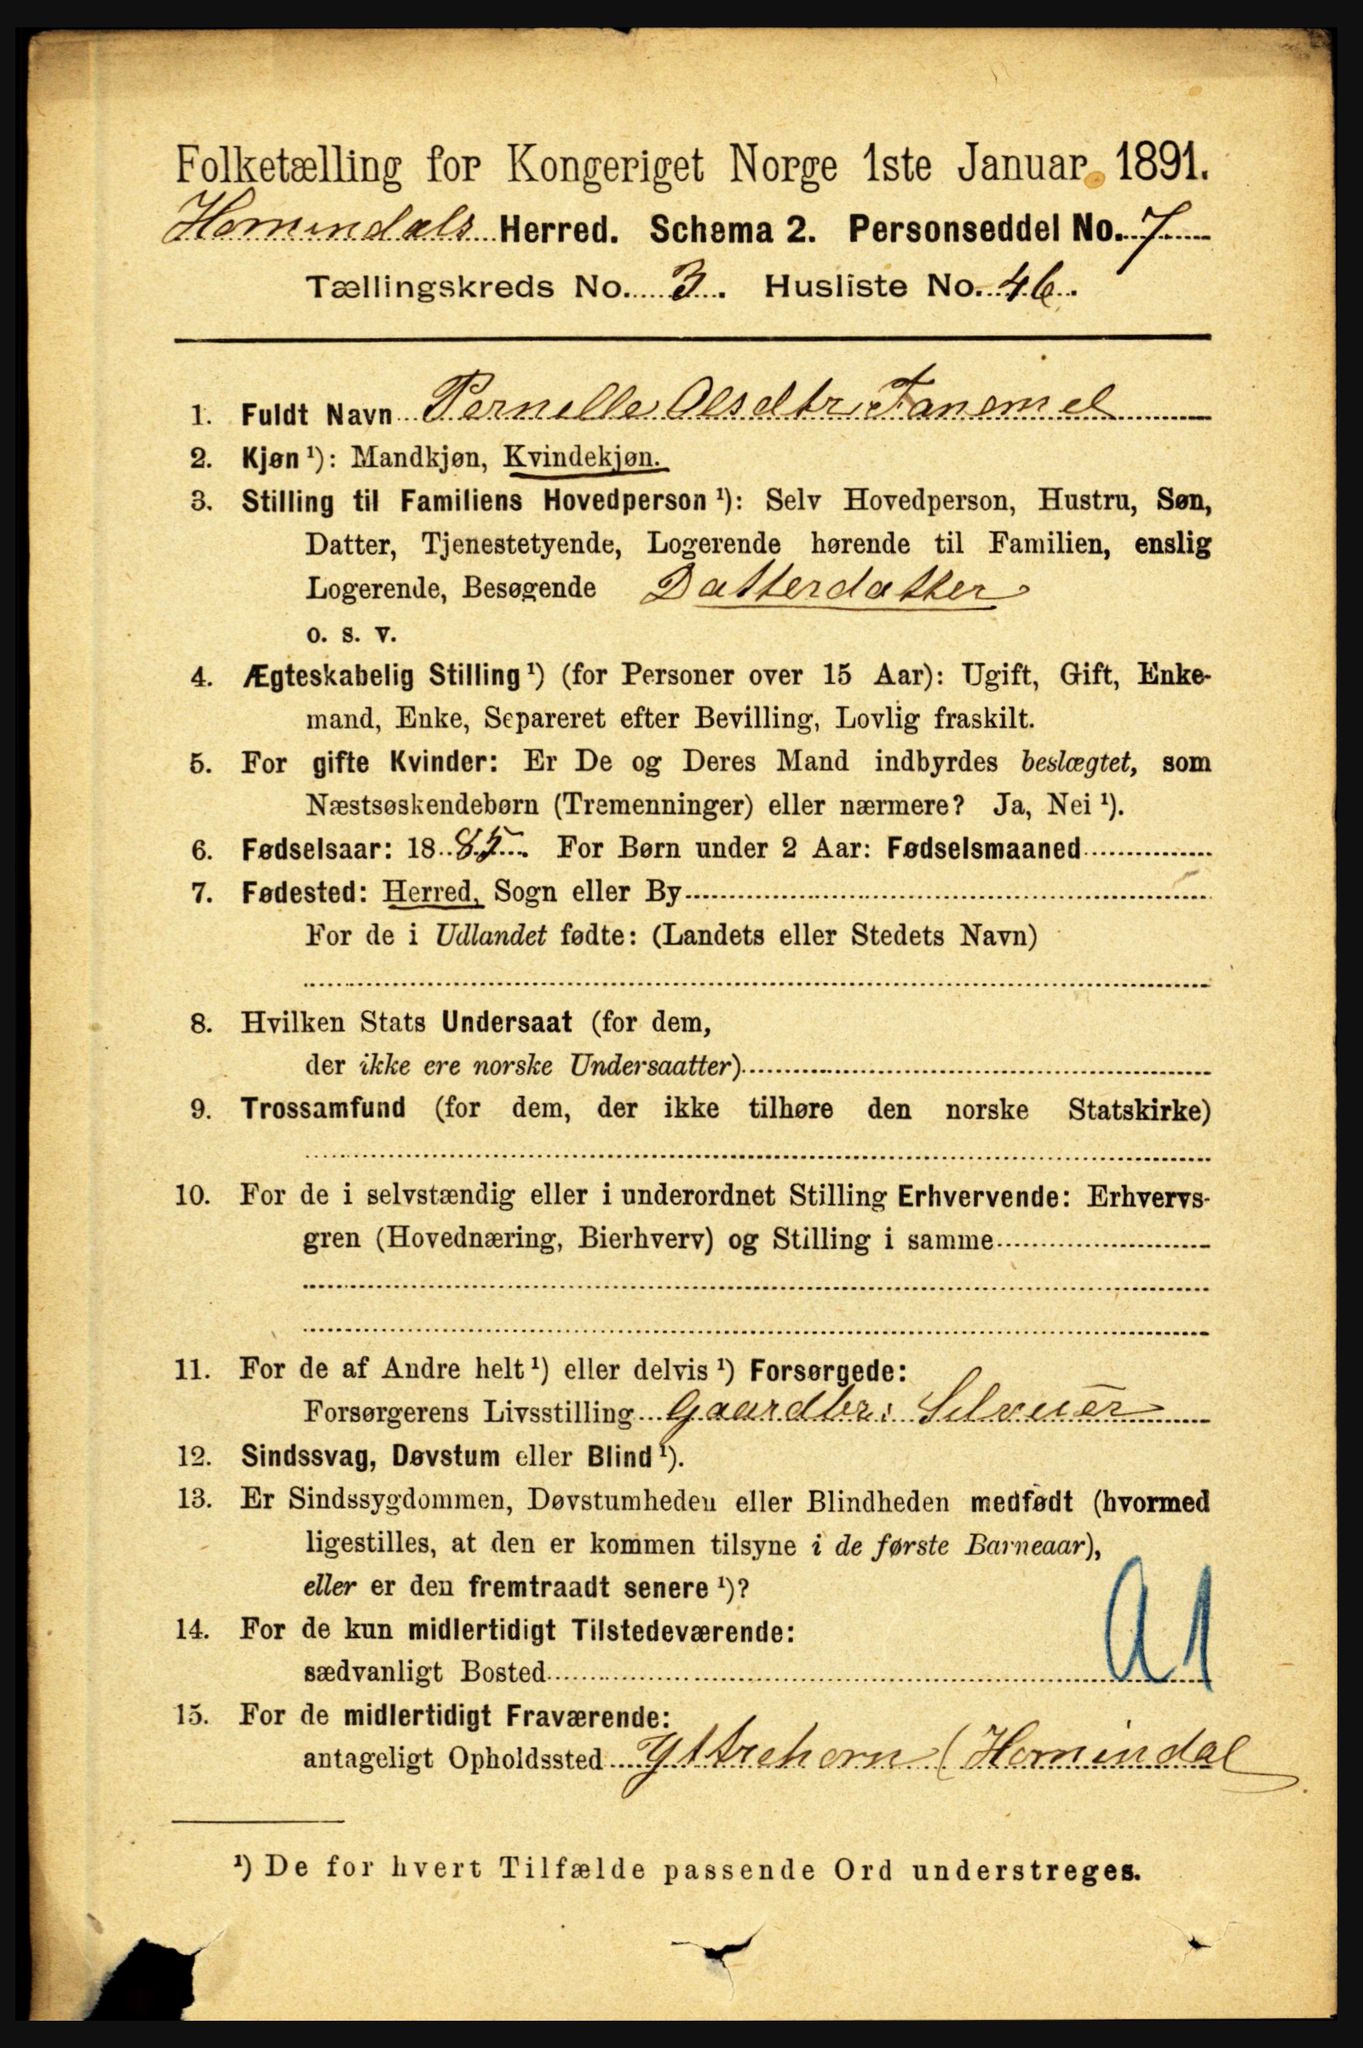 Folketælling for Kongeriget Norge 1ste Januar 1891.
Homindals Herred. Schema 2. Personseddel No. 7
Tællingskreds No. 3. Husliste No. 46.
1. Fuldt Navn Pernelle Olsdtr Fanemel
2. Kjøn ¹): Mandkjøn, Kvindekjøn.
3. Stilling til Familiens Hovedperson ¹): Selv Hovedperson, Hustru, Søn,
Datter, Tjenestetyende, Logerende hørende til Familien, enslig
Logerende, Besøgende Datterdatter
o. s. v.
4. Ægteskabelig Stilling ¹) (for Personer over 15 Aar): Ugift, Gift, Enke-
mand, Enke, Separeret efter Bevilling, Lovlig fraskilt.
5. For gifte Kvinder: Er De og Deres Mand indbyrdes beslægtet, som
Næstsøskendebørn (Tremenninger) eller nærmere? Ja, Nei ¹).
6. Fødselsaar: 1885. For Børn under 2 Aar: Fødselsmaaned
7. Fødested: Herred, Sogn eller By
For de i Udlandet fødte: (Landets eller Stedets Navn)
8. Hvilken Stats Undersaat (for dem,
der ikke ere norske Undersaatter)
9. Trossamfund (for dem, der ikke tilhøre den norske Statskirke)
10. For de i selvstændig eller i underordnet Stilling Erhvervende: Erhvervs-
gren (Hovednæring, Bierhverv) og Stilling i samme
11. For de af Andre helt ¹) eller delvis ¹) Forsørgede:
Forsørgerens Livsstilling Gaardbr: Selveier
12. Sindssvag, Døvstum eller Blind ¹).
13. Er Sindssygdommen, Døvstumheden eller Blindheden medfødt (hvormed
ligestilles, at den er kommen tilsyne i de første Barneaar),
eller er den fremtraadt senere ¹)?
14. For de kun midlertidigt Tilstedeværende:
sædvanligt Bosted
a1
15. For de midlertidigt Fraværende:
antageligt Opholdssted Yttrehorn (Homindal
¹) De for hvert Tilfælde passende Ord understreges.